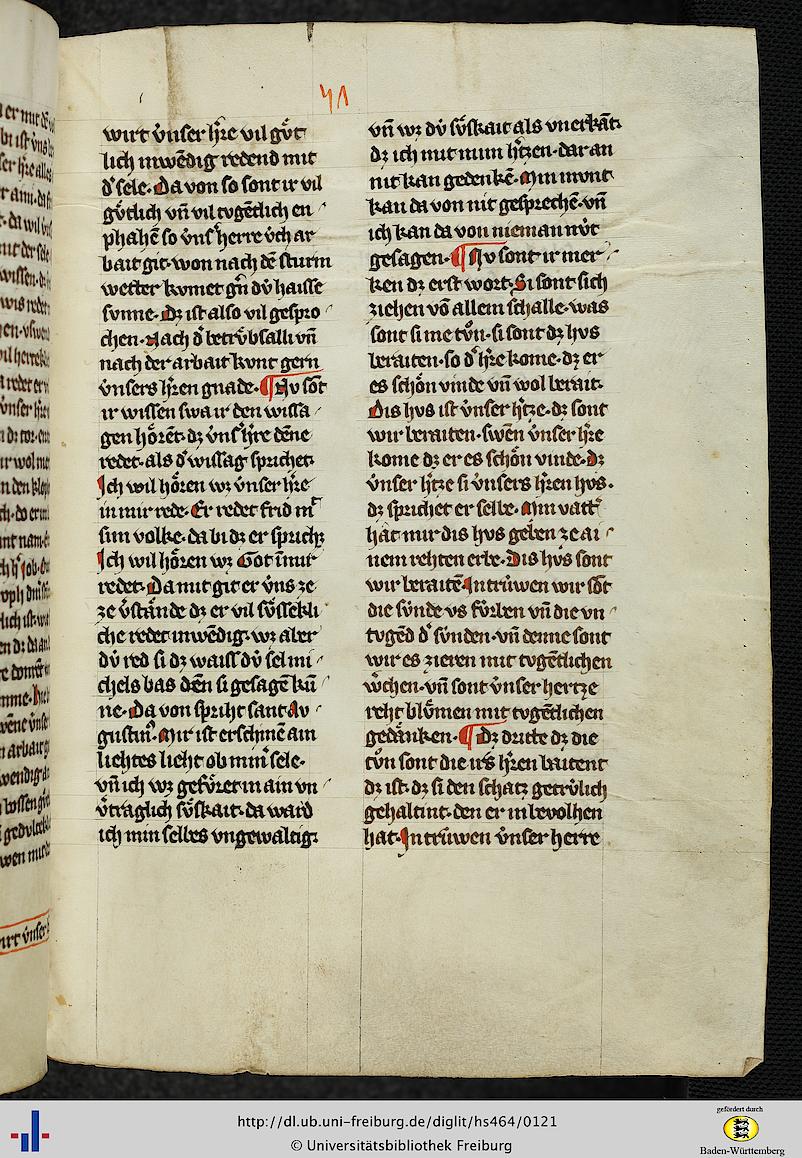 41
wirt v̍nser h̄re vil gv̊t
lich inwēdig redend mit
d̓ sele. Da von so sont ir vil
gv̊tlich vn̄ vil tvgētlich en
phahē so v̍ns̓ herre v̍ch ar
bait git. won nach dē sturm
wetter kvmet gn̄ dv̍ haisse
svnne. Dz ist also vil gespro
chen. Nach d̓ betrv̍bsalli vn̄
nach der arbait kvnt gern
v̍nsers h̄ren gnade. ¶ Nv sōt
ir wissen swa ir den wissa
gen hȯrēt. dz v̍ns̓ h̄re dēne
redet. als d̓ wissag sprichet.
Ich wil hȯren wz v̍nser h̄re
in mir rede. Er redet frid mt̓
sim volke. da bi dz er sprichz
Ich wil hȯren wz Got in mir
redet. Da mit git er v̍ns ze
ze v̍stände dz er vil sv̊ssekli
che redet inwēdig. wz aber
dv̍ red si dz waiss dv̍ sel mi
chels bas dēn si gesagē kū
ne. Da von spriht sant Av
gustin̓. Mir ist erschinē ain
liehtes lieht ob min̓ sele.
vn̄ ich wz gefv̊ret in ain vn
v̍traglich sv̊skait. da ward
ich min selbes vngewaltig.
vn̄ wz dv̍ sv̊skait als vnerkāt.
dz ich mit minn h̓tzen. dar an
nit kan gedenkē. Min mvnt
kan da von nit gesprechē. vn̄
ich kan da von nieman nv̍t
gesagen. ¶ Nv sont ir mer
ken dz erst wort. Si sont sich
ziehen vō allem schalle. was
sont si me tv̊n. si sont dz hvs
beraiten. so d̓ h̄re kome. dz er
es schȯn vinde vn̄ wol berait.
Dis hvs ist v̍nser h̓tze. dz sont
wir beraiten. swen v̍nser h̄re
kome dz er es schȯn vinde. Dz
v̍nser h̓tze si v̍nsers h̄ren hvs.
dz sprichet er selbe. Min vatt̓
hat mir dis hvs geben ze ai
nem rehten erbe. Dis hvs sont
wir beraitē. In trv̍wen wir sōt
die sv̍nde vs fv̍rben vn̄ die vn
tvgēd d̓ sv̍nden. vn̄ denne sont
wir es zieren mit tvgētlichen
w̓chen. vn̄ sont v̍nser hertze
reht blv̊men mit tvgētlichen
gedänken. ¶ Dz dritte dz die
tv̊n sont die irs h̄ren baitent
dz ist. dz si den schatz getrv̍lich
gehaltint. den er in bevolhen
hat. In trv̍wen v̍nser herre
http://dl.ub.uni-freiburg.de/diglit/hs464/0121
© Universitätsbibliothek Freiburg
gefördert durch
Baden-Württemberg